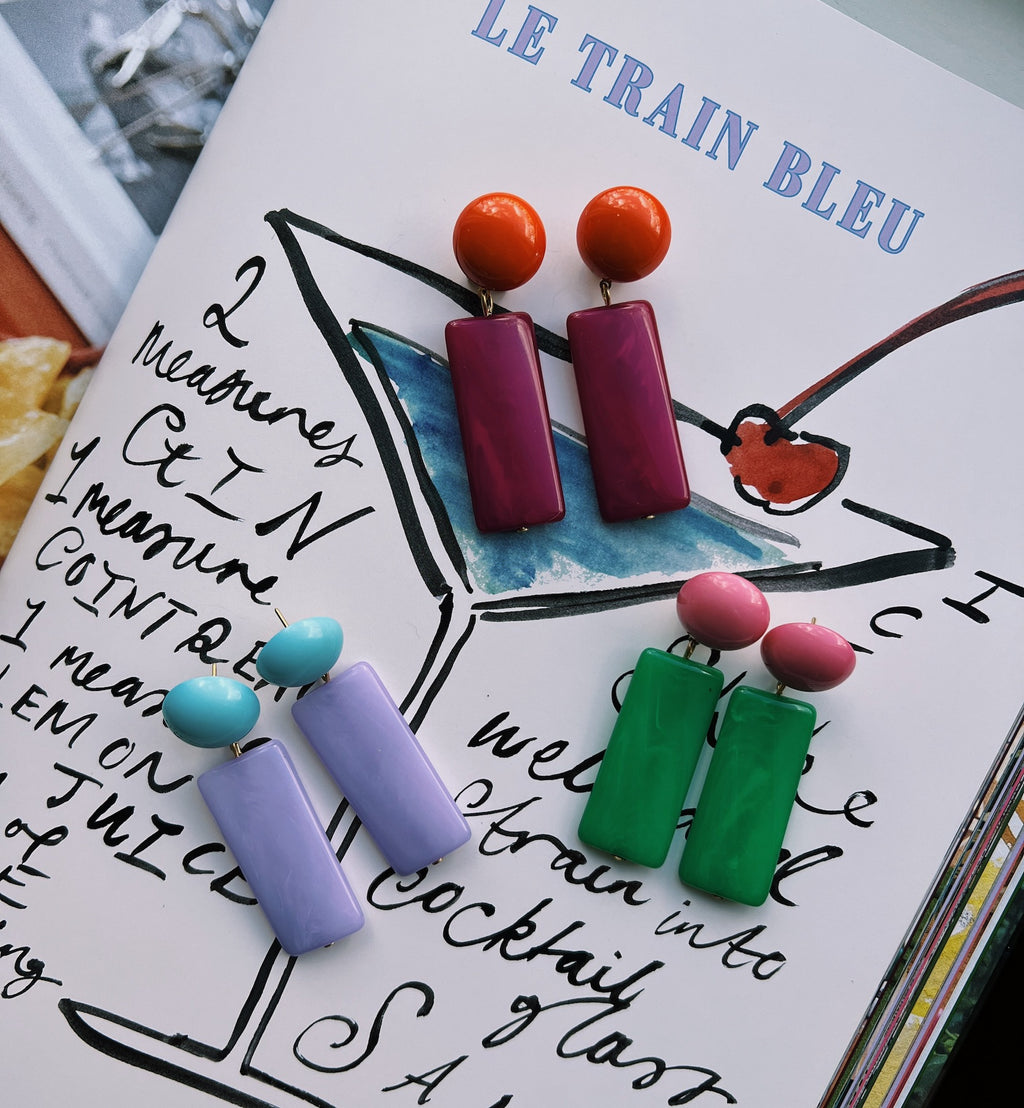 LE TRAIN BLEU
2
measures
GIN
1 measure
COINTRE
1 meas
LEMON
JUICE
of
ing
IC
well
Strain into
cocktail
glass
SA